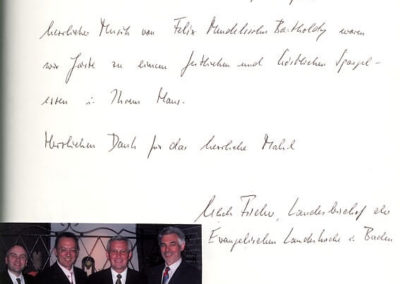 herrlicher Musik von Felix Mendelssohn Bartholdy waren
wir Gäste zu einem festlichen und köstlichen Spargel-
essen i. Ihrem Haus.
Herzlichen Dank für das herrliche Mahl
Ulrich Fischer, Landesbischof der
Evangelischen Landeskirche i. Baden